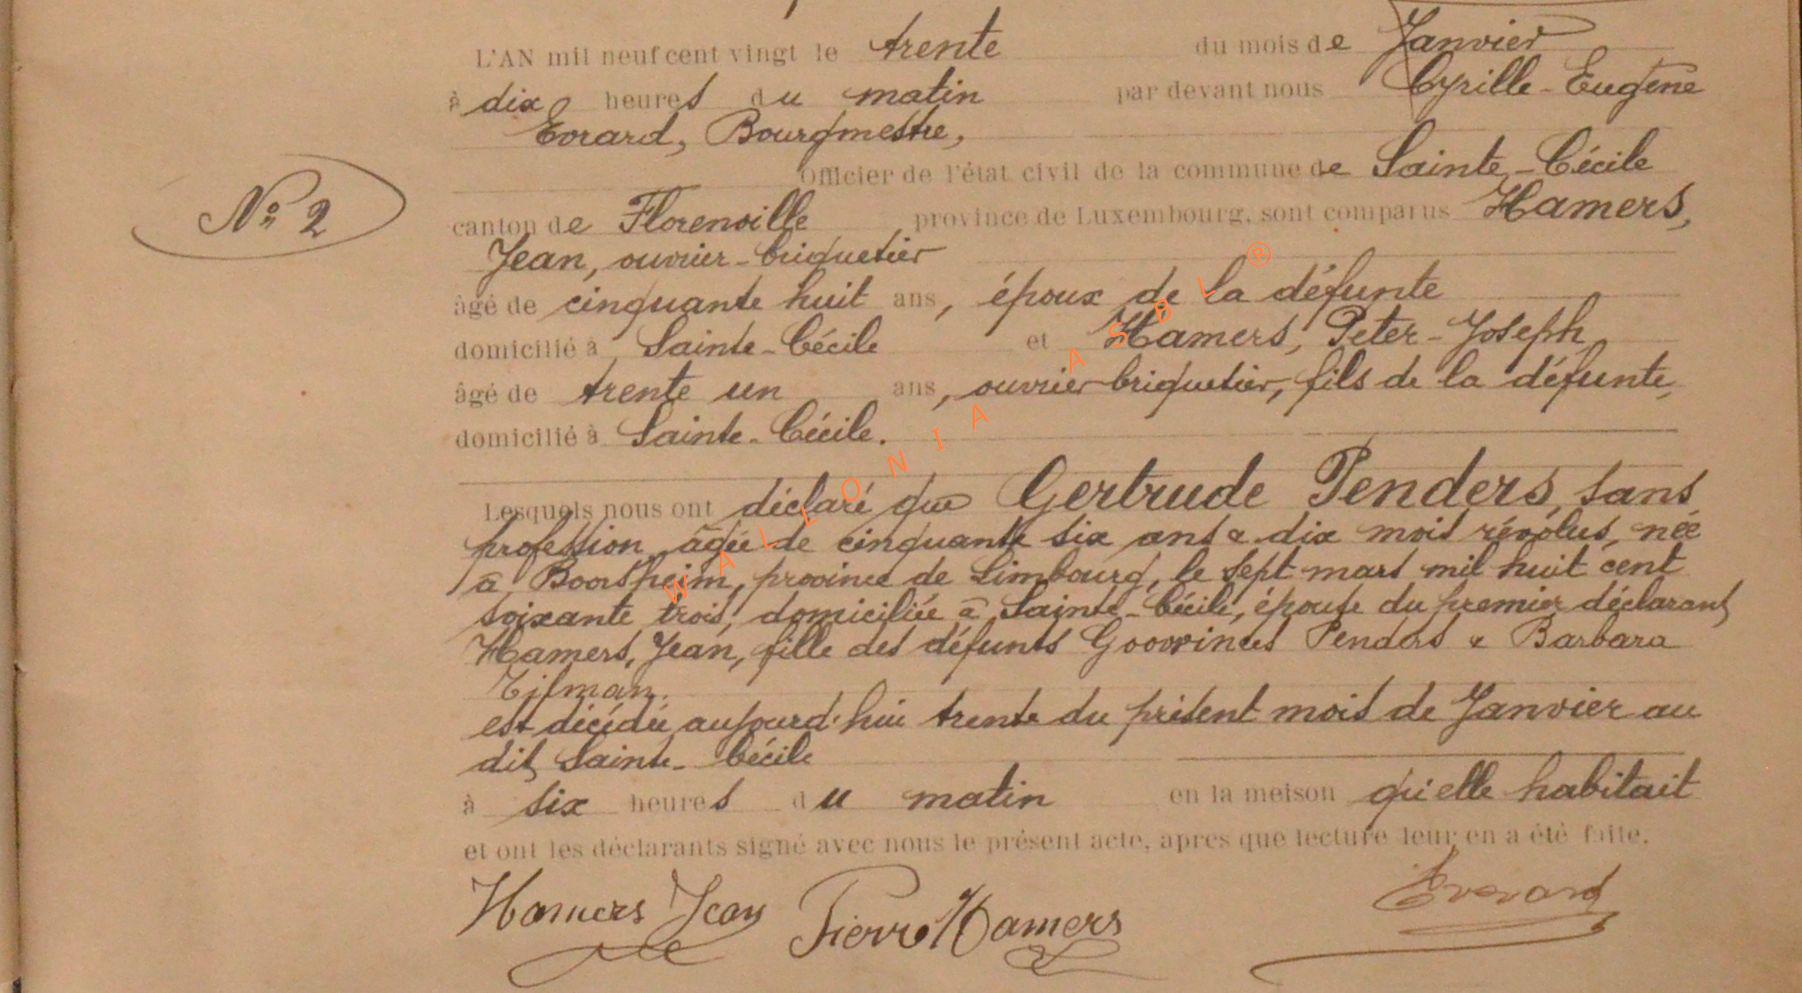 L'AN mil neuf cent vingt le trente du mois de Janvier
à dix heures du matin par devant nous Cyrille-Eugène
Evrard, Bourgmestre,
Officier de l'état civil de la commune de Sainte-Cécile
N° 2
canton de Florenville province de Luxembourg, sont comparus Hamers,
Jean, ouvrier-briquetier
âgé de cinquante huit ans, époux de la défunte
domicilié à Sainte-Cécile et Hamers, Peter-Joseph
âgé de trente un ans, ouvrier briquetier, fils de la défunte,
domicilié à Sainte-Cécile.
Lesquels nous ont déclaré que Gertrude Penders, sans
profession, âgée de cinquante six ans & dix mois révolus, née
à Boorsheim, province de Limbourg, le sept mars mil huit cent
soixante trois, domiciliée à Sainte-Cécile, épouse du premier déclarant
Hamers, Jean, fille des défunts Penders & Barbara
Tilman.
est décédée aujourd'hui trente du présent mois de Janvier au
dit Sainte-Cécile
à six heures du matin en la meison qu'elle habitait
et ont les déclarants signé avec nous le présent acte, apres que lecture leur en a été faite.
Hamers Jean Pierre Hamers Evrard
WALLONIA ASBL ®